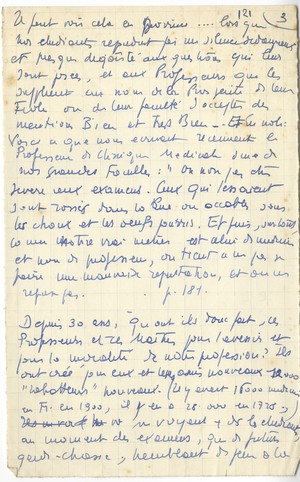 121 3
peut voir cela en province .... lorsque
nos étudiants répondent par un silence dédaigneux
et presque dégoûté aux questions qui leur
sont posées, et aux Professeurs qui les
supplient au nom de la prospérité de leur
École ou de leur faculté d'accepter des
mentions Bien et Très Bien
Voici ce que nous écrivait récemment le
Professeur de Clinique Médicale d'une de
nos grandes Facultés : " On non pas être
sévère aux examens. Ceux qui l'essayent
sont rossés dans la rue ou accablés sous
les choux et les oeufs pourris. Et puis, surtout,
comme notre vrai métier est celui de médecin
et non de professeur, on tient à ne pas se
faire une mauvaise réputation, et on ne
refuse pas. p. 181.
Depuis 30 ans, qu'ont-ils donc fait, ces
Professeurs et ces Maîtres pour l'avenir et
pour la moralité de notre profession ? Ils
ont créé, par eux et nouveaux 12.000
nouveaux. (Il y avait 16000 médecins
en Fr. en 1900, il y en a 28.000 en 1928),
voyant des étudiants
au moment des examens, que de futurs
gardes-chasse, tremblant de peur à la